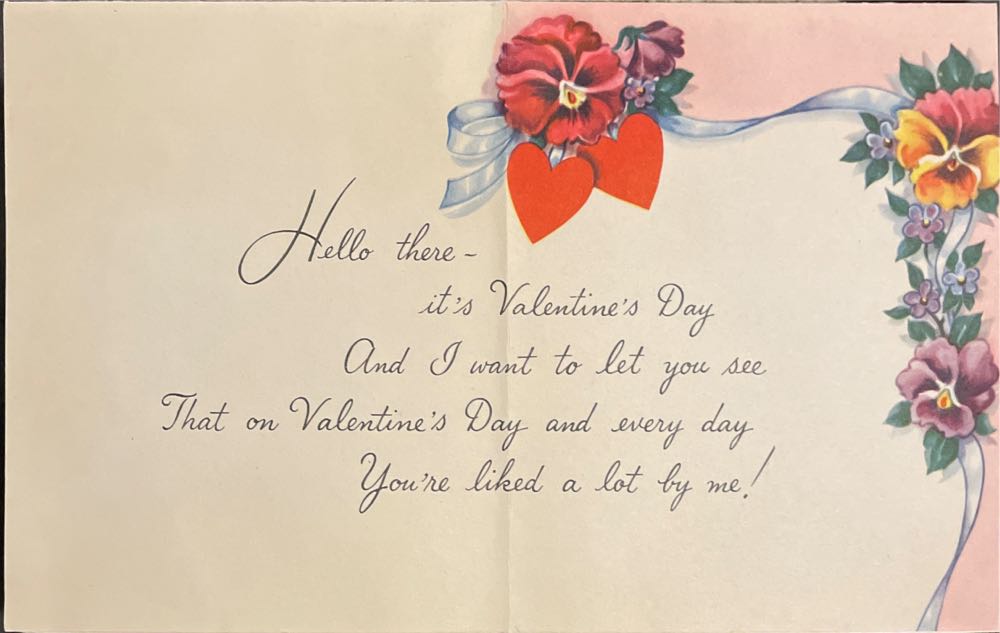 Hello there –
it's Valentine's Day
And I want to let you see
That on Valentine's Day and every day
You're liked a lot by me!